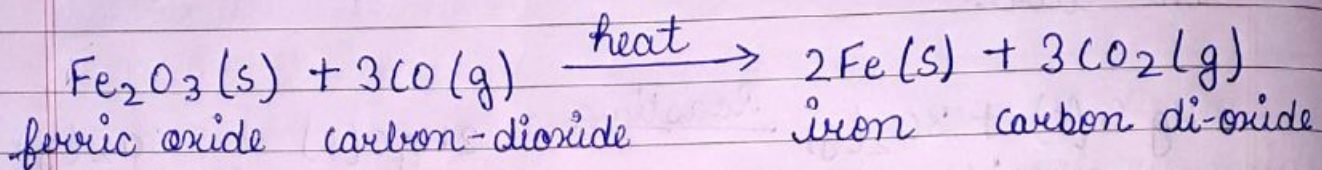 heat
Fe2O3(s) + 3CO(g) → 2Fe(s) + 3CO2(g)
ferric oxide carbon-dioxide iron carbon di-oxide